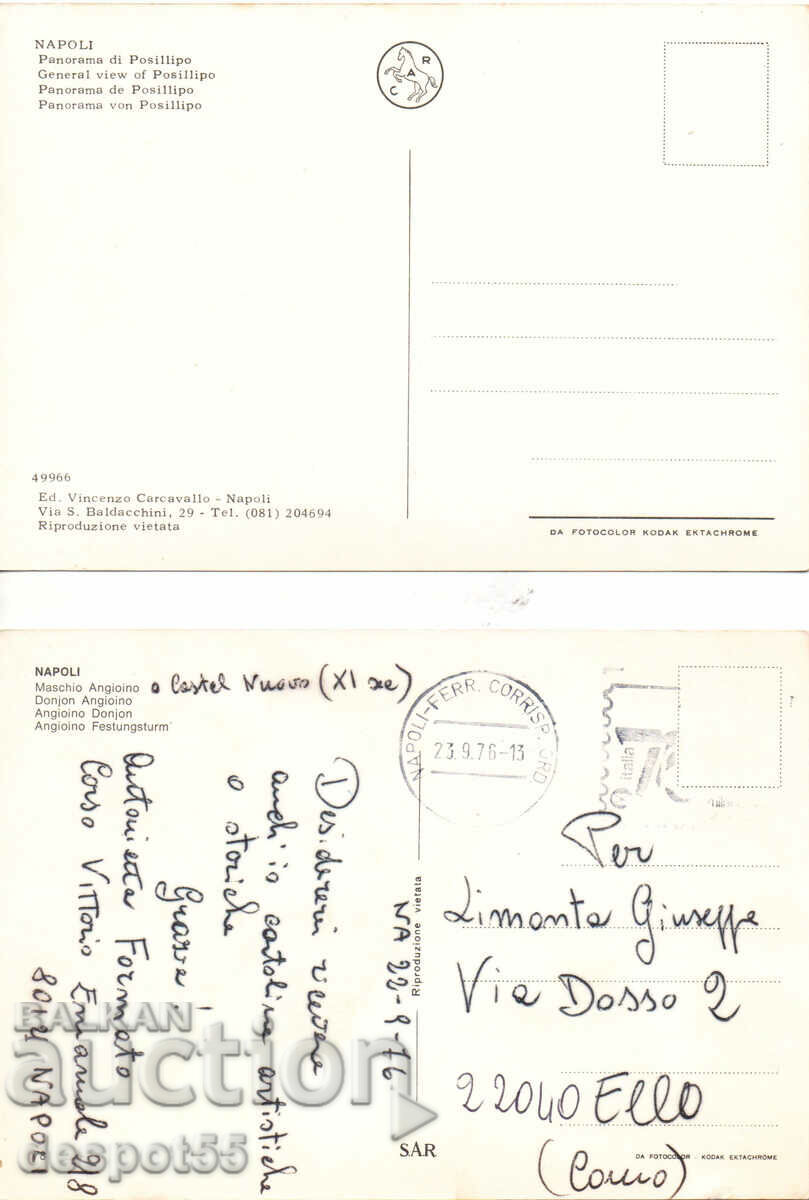 NAPOLI
Panorama di Posillipo
General view of Posillipo
Panorama de Posillipo
Panorama von Posillipo
C A R
49966
Ed. Vincenzo Carcavallo - Napoli
Via S. Baldacchini, 29 - Tel. (081) 204694
Riproduzione vietata
DA FOTOCOLOR KODAK EKTACHROME
NAPOLI
Maschio Angioino o Castel Nuovo (XI sec)
Donjon Angioino
Angioino Donjon
Angioino Festungsturm
NAPOLI-FERR. CORRISP. ORD
23.9.76-13
italia
Desidererei ricevere
anch'io cartoline artistiche
o storiche
Grazie!
Antonietta Formato
Corso Vittorio Emanuele 218
80121 NAPOLI
NA 22-9-76
Riproduzione vietata
Per
Limonta Giuseppe
Via Dosso 2
22040 Ello
(Como)
SAR
DA FOTOCOLOR - KODAK EKTACHROME
BALKAN
auction
despot55